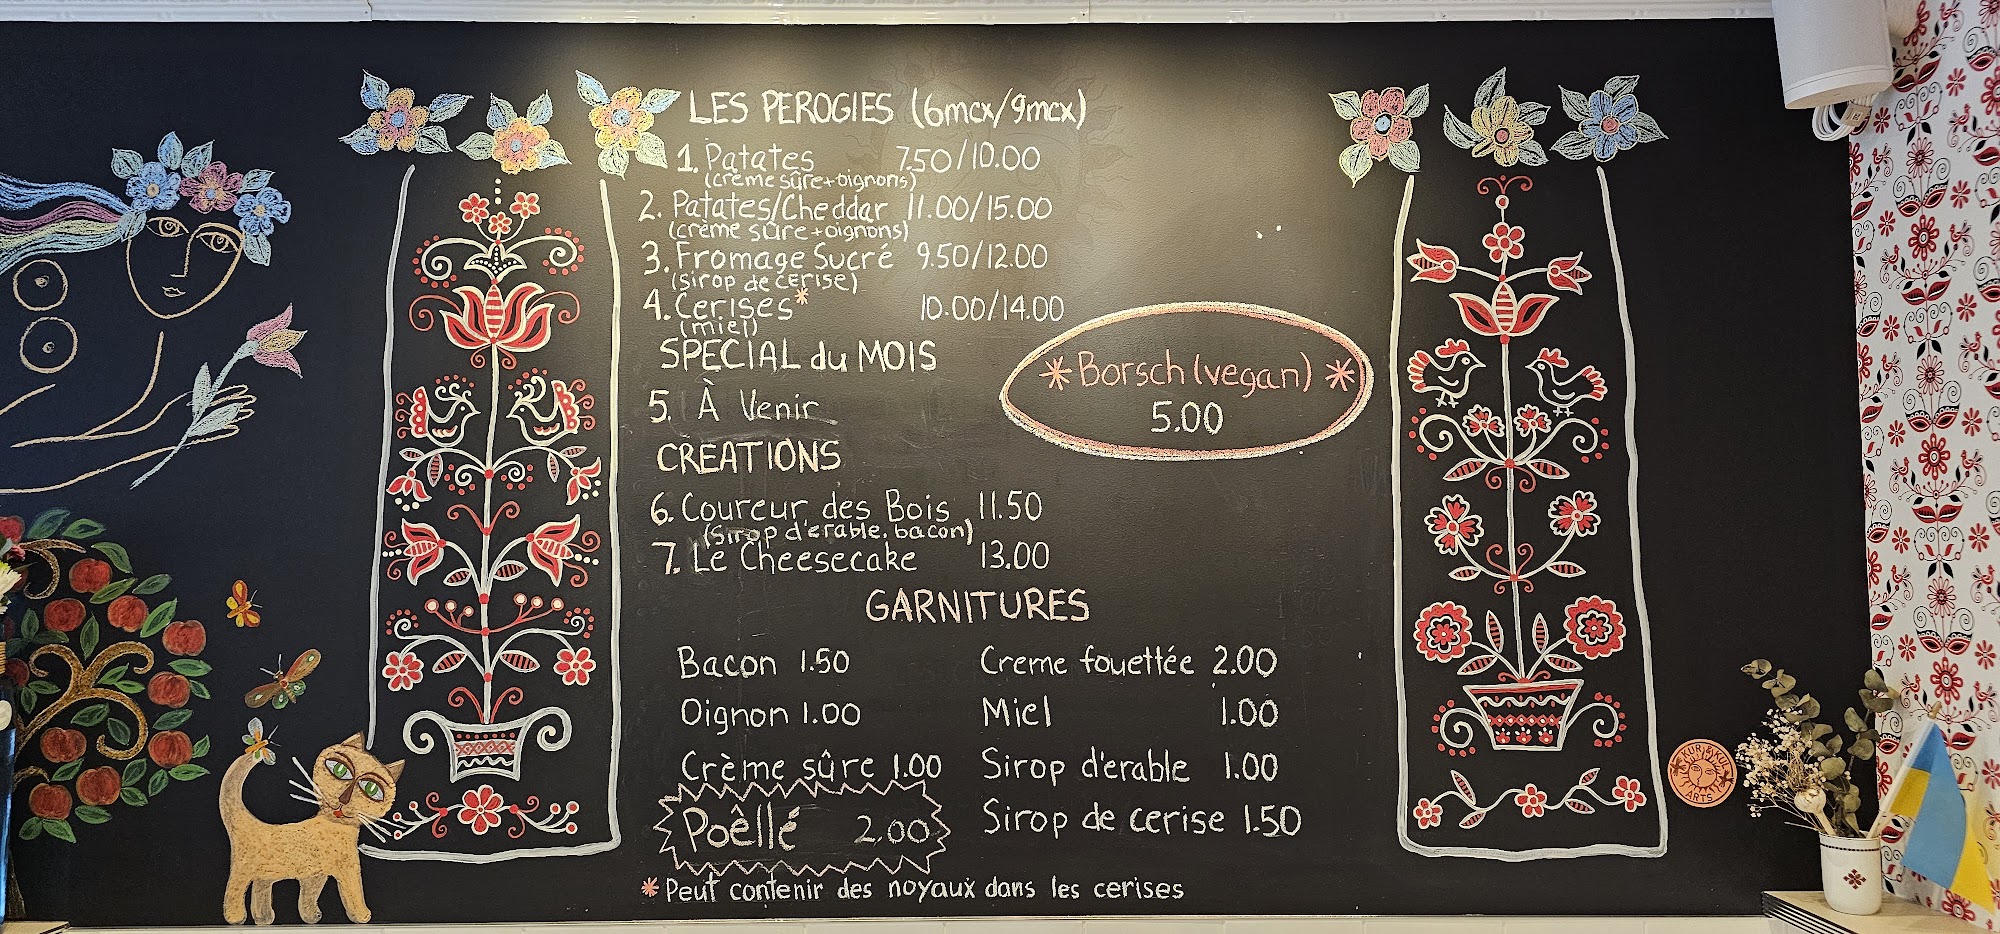 LES PEROGIES (6mcx/9mcx)
1. Patates 7.50/10.00
(crème sûre+oignons)
2. Patates/Cheddar 11.00/15.00
(crème sûre+oignons)
3. Fromage Sucré 9.50/12.00
(sirop de cerise)
4. Cerises* 10.00/14.00
(miel)
SPECIAL du MOIS
5. À Venir
*Borsch (vegan)*
5.00
CREATIONS
6. Coureur des Bois 11.50
(sirop d'erable. bacon)
7. Le Cheesecake 13.00
GARNITURES
Bacon 1.50
Oignon 1.00
Crème sûre 1.00
Poêllé 2.00
Creme fouettée 2.00
Miel 1.00
Sirop d'erable 1.00
Sirop de cerise 1.50
*Peut contenir des noyaux dans les cerises
ARTS